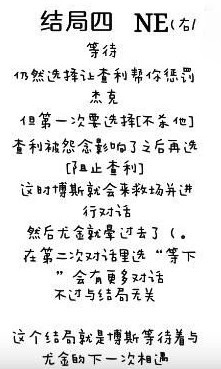 结局四 NE(右/
等待
仍然选择让查利帮你惩罚
杰克
但第一次要选择[不杀他]
查利被怨念影响了之后再选
[阻止查利]
这时博斯就会来救场并进
行对话
然后尤金就晕过去了(。
在第二次对话里选“等下
”会有更多对话
不过与结局无关
这个结局就是博斯等待着与
尤金的下一次相遇